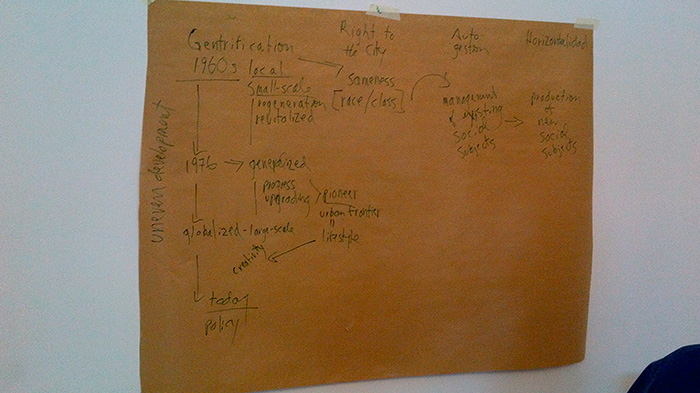 Gentrification
1960s local
small-scale
regeneration
revitalized
1976 → generalized
process
upgrading
pioneer
urban frontier
"
lifestyle
globalized - large-scale
creativity
today
policy
uneven development
Right to
the City
sameness
[race/class]
Auto
gestion
management
of existing
social
subjects
Horizontalidad
production
of
new
social
subjects